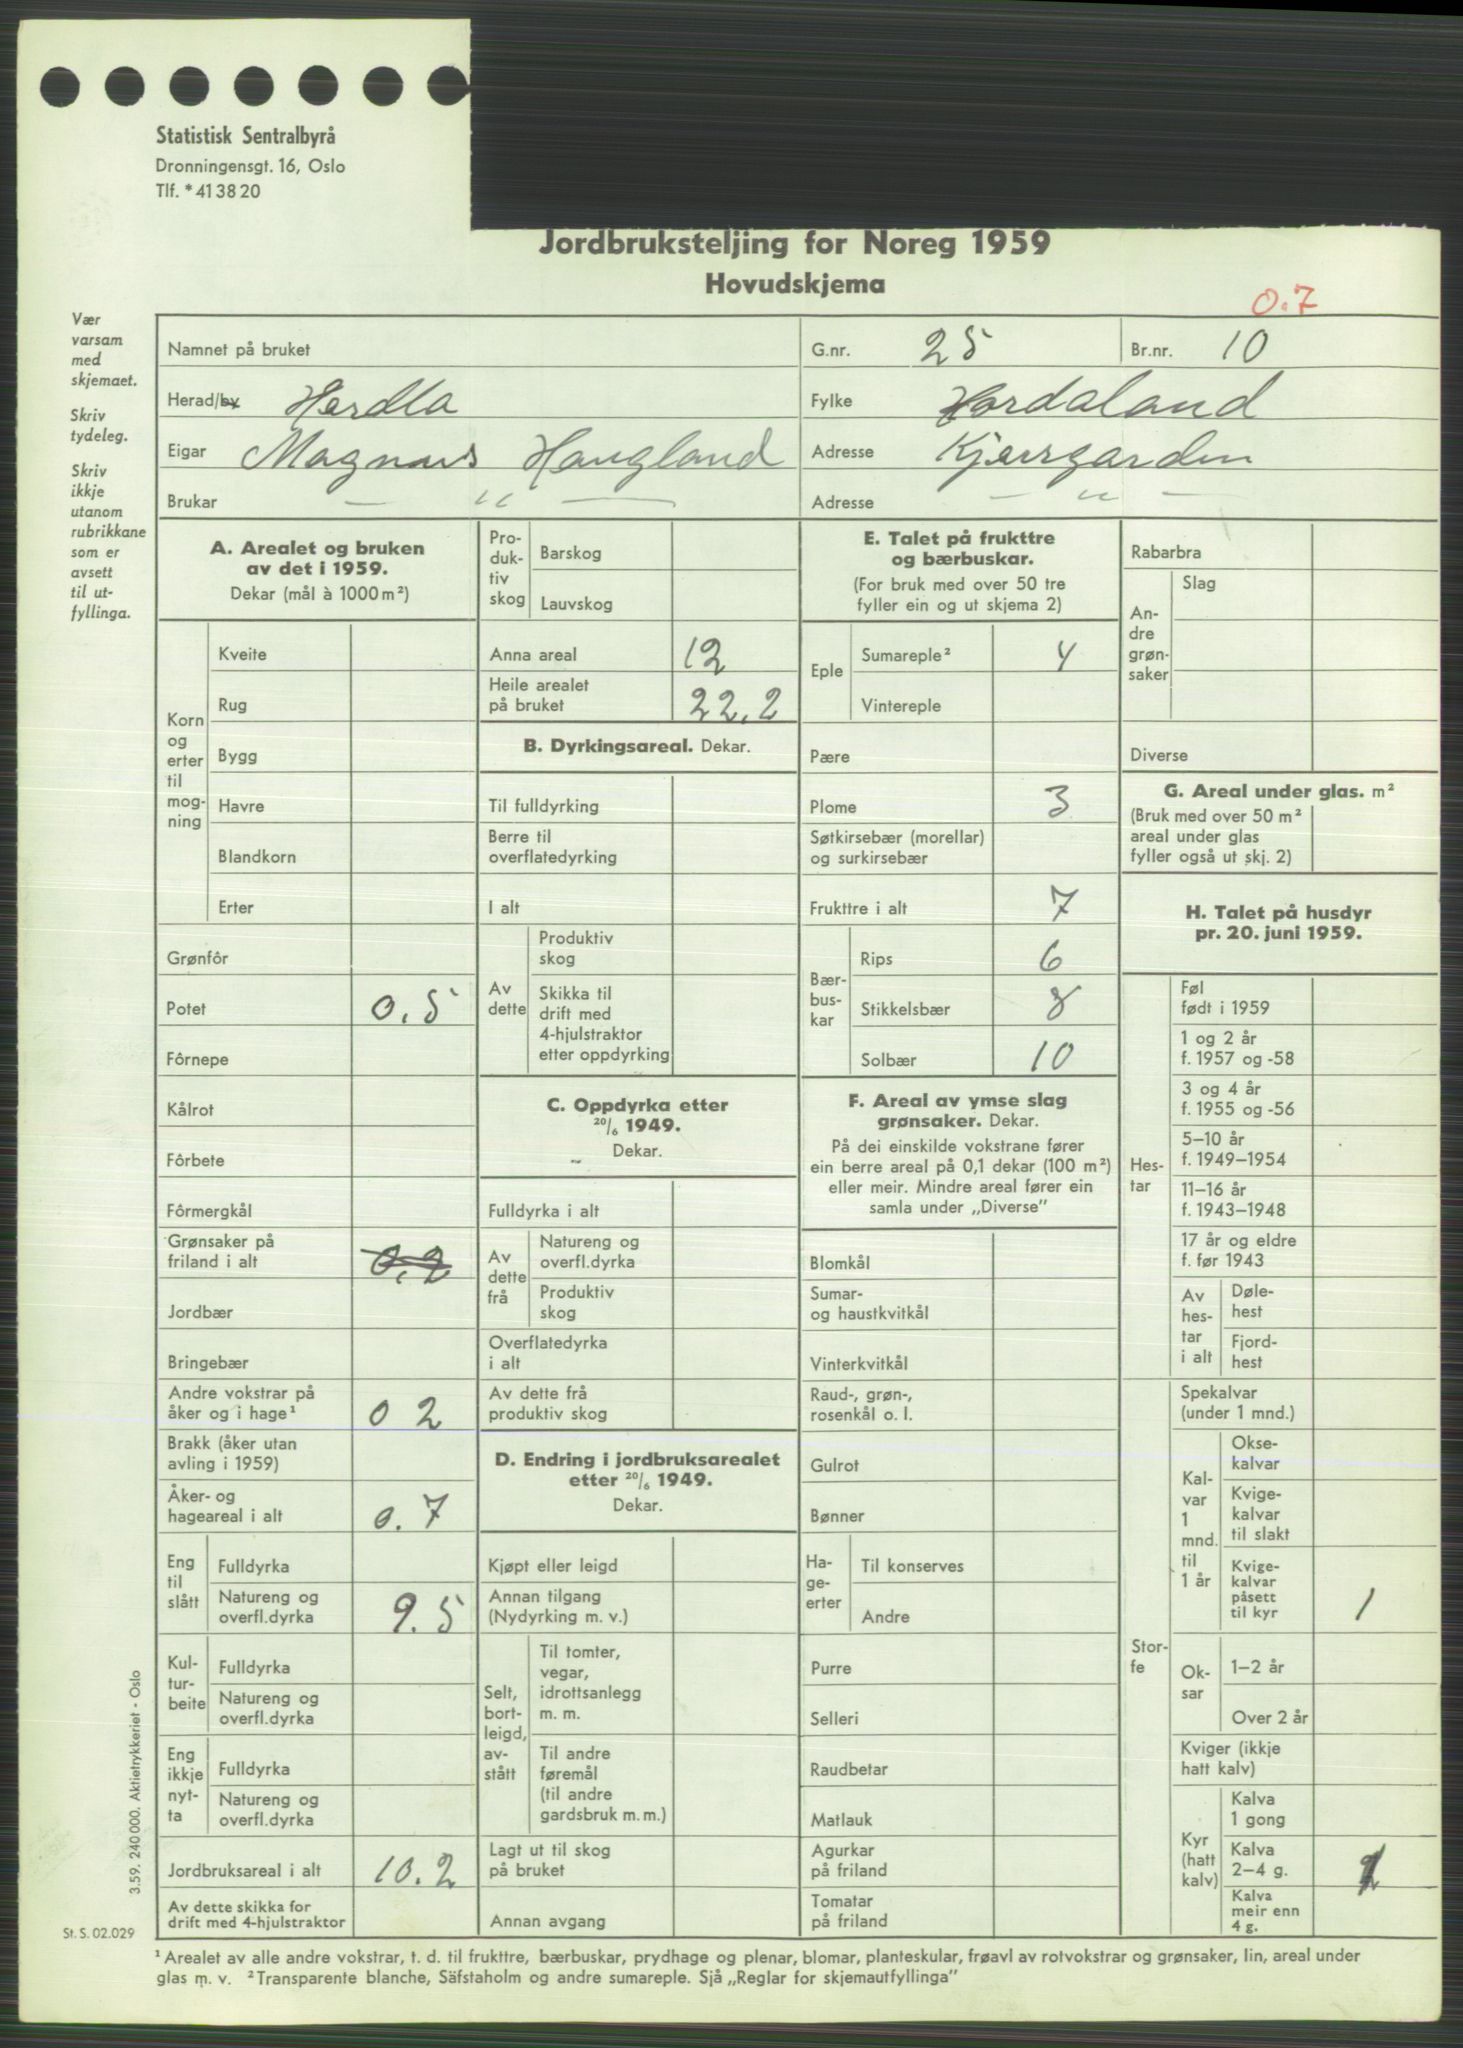 Statistisk Sentralbyrå
Dronningensgt. 16, Oslo
Tlf. * 41 38 20
Jordbruksteljing for Noreg 1959
Hovudskjema
0.7
Vær
varsam
med
skjemaet.
Skriv
tydeleg.
Skriv
ikkje
utanom
rubrikkane
som er
avsett
til ut-
fyllinga.
Namnet på bruket
G.nr. 25 Br.nr. 10
Herad/by Herdla
Fylke Hordaland
Eigar Magnus Haugland
Adresse Kjersgarden
Brukar — " —
Adresse — " —
A. Arealet og bruken
av det i 1959.
Dekar (mål à 1000 m²)
Korn
og
erter
til
mog-
ning
Kveite
Rug
Bygg
Havre
Blandkorn
Erter
Grønfôr
Potet 0,5
Fôrnepe
Kålrot
Fôrbete
Fôrmergkål
Grønsaker på
friland i alt 0,2
Jordbær
Bringebær
Andre vokstrar på
åker og i hage¹ 0 2
Brakk (åker utan
avling i 1959)
Åker- og
hageareal i alt 0.7
Eng
til
slått
Fulldyrka
Natureng og
overfl.dyrka 9.5
Kul-
tur-
beite
Fulldyrka
Natureng og
overfl.dyrka
Eng
ikkje
nyt-
ta
Fulldyrka
Natureng og
overfl.dyrka
Jordbruksareal i alt 10.2
Av dette skikka for
drift med 4-hjulstraktor
Pro-
duk-
tiv
skog
Barskog
Lauvskog
Anna areal 12
Heile arealet
på bruket 22.2
B. Dyrkingsareal. Dekar.
Til fulldyrking
Berre til
overflatedyrking
I alt
Av
dette
Produktiv
skog
Skikka til
drift med
4-hjulstraktor
etter oppdyrking
C. Oppdyrka etter
20/6 1949.
Dekar.
Fulldyrka i alt
Av
dette
frå
Natureng og
overfl.dyrka
Produktiv
skog
Overflatedyrka
i alt
Av dette frå
produktiv skog
D. Endring i jordbruksarealet
etter 20/6 1949.
Dekar.
Kjøpt eller leigd
Annan tilgang
(Nydyrking m. v.)
Selt,
bort-
leigd,
av-
stått
Til tomter,
vegar,
idrottsanlegg
m. m.
Til andre
føremål
(til andre
gardsbruk m. m.)
Lagt ut til skog
på bruket
Annan avgang
E. Talet på frukttre
og bærbuskar.
(For bruk med over 50 tre
fyller ein og ut skjema 2)
Eple
Sumareple² 4
Vintereple
Pære
Plome 3
Søtkirsebær (morellar)
og surkirsebær
Frukttre i alt 7
Bær-
bus-
kar
Rips 6
Stikkelsbær 8
Solbær 10
F. Areal av ymse slag
grønsaker. Dekar.
På dei einskilde vokstrane fører
ein berre areal på 0,1 dekar (100 m²)
eller meir. Mindre areal fører ein
samla under „Diverse"
Blomkål
Sumar-
og haustkvitkål
Vinterkvitkål
Raud-, grøn-,
rosenkål o. l.
Gulrot
Bønner
Ha-
ge-
erter
Til konserves
Andre
Purre
Selleri
Raudbetar
Matlauk
Agurkar
på friland
Tomatar
på friland
Rabarbra
An-
dre
grøn-
saker
Slag
Diverse
G. Areal under glas. m²
(Bruk med over 50 m²
areal under glas
fyller også ut skj. 2)
H. Talet på husdyr
pr. 20. juni 1959.
Hes-
tar
Føl
født i 1959
1 og 2 år
f. 1957 og -58
3 og 4 år
f. 1955 og -56
5–10 år
f. 1949–1954
11–16 år
f. 1943–1948
17 år og eldre
f. før 1943
Av
hes-
tar
i alt
Døle-
hest
Fjord-
hest
Stor-
fe
Spekalvar
(under 1 mnd.)
Kal-
var
1
mnd.
til
1 år
Okse-
kalvar
Kvige-
kalvar
til slakt
Kvige-
kalvar
påsett
til kyr 1
Ok-
sar
1–2 år
Over 2 år
Kviger (ikkje
hatt kalv)
Kyr
(hatt
kalv)
Kalva
1 gong
Kalva
2–4 g.
Kalva
meir enn
4 g.
3.59. 240 000. Aktietrykkeriet - Oslo
St. S. 02.029
¹ Arealet av alle andre vokstrar, t. d. til frukttre, bærbuskar, prydhage og plenar, blomar, planteskular, frøavl av rotvokstrar og grønsaker, lin, areal under
glas m. v. ² Transparente blanche, Säfstaholm og andre sumareple. Sjå „Reglar for skjemautfyllinga"